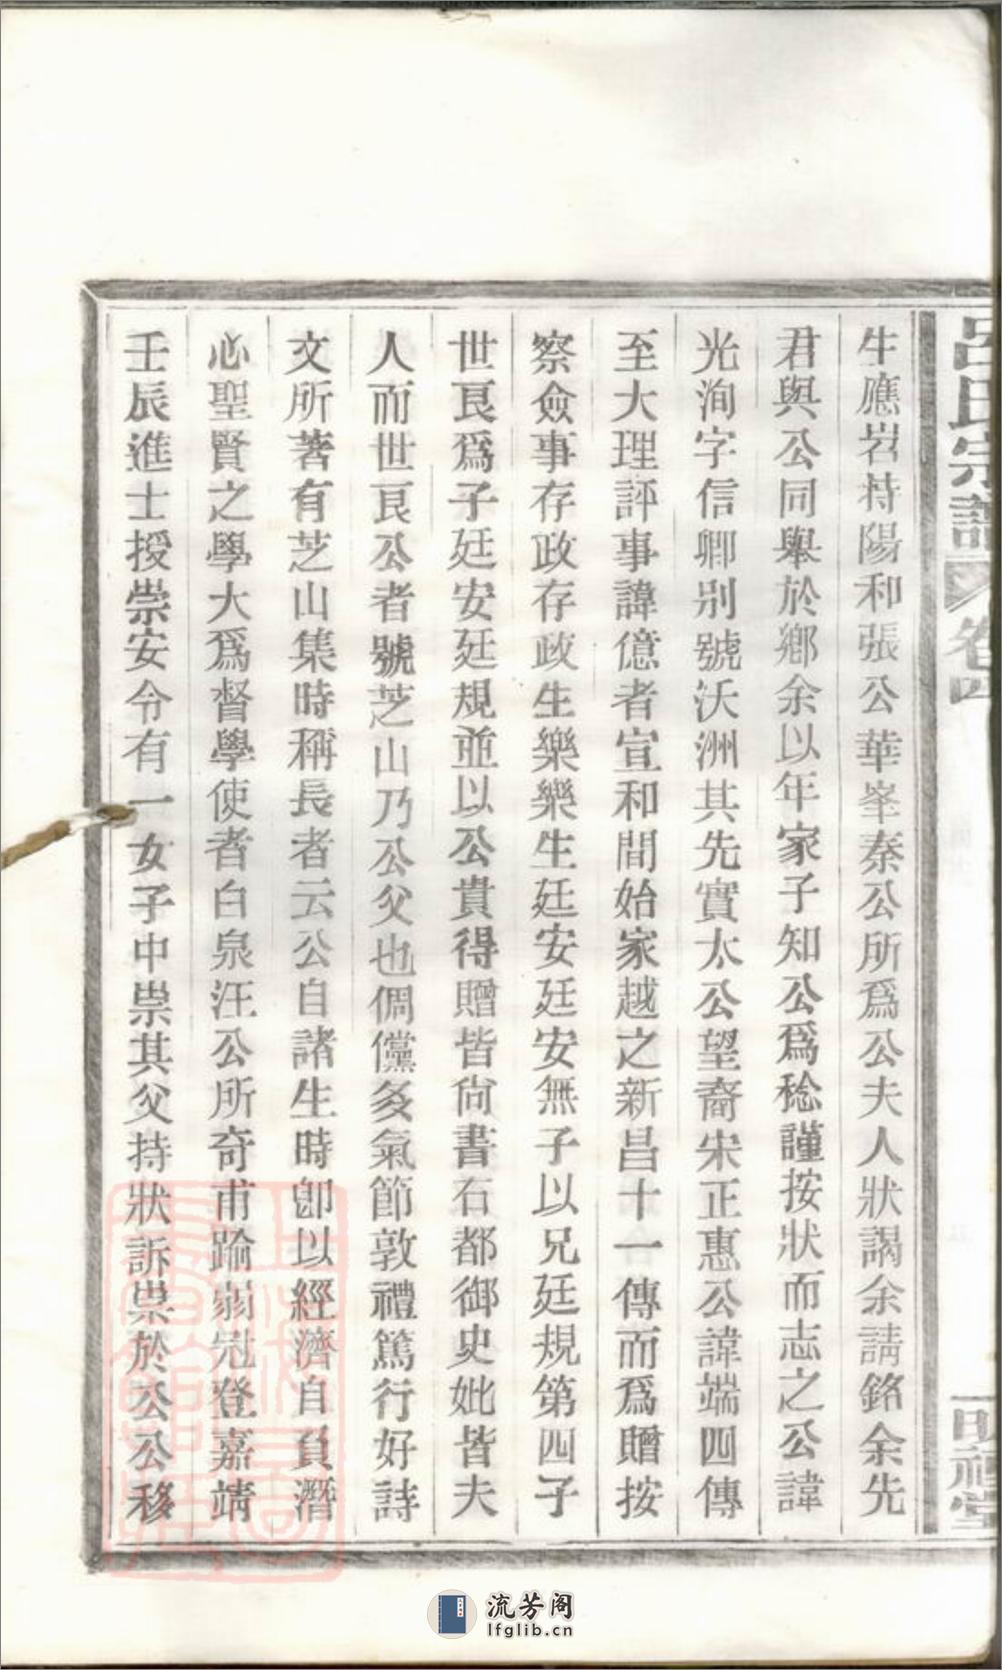 呂氏宗譜 卷四
明禋堂
生應岩持陽和張公華峯秦公所爲公夫人狀謁余請銘余先
君與公同舉於鄉余以年家子知公爲稔謹按狀而志之公諱
光洵字信卿别號沃洲其先實太公望裔宋正惠公諱端四傳
至大理評事諱億者宣和間始家越之新昌十一傳而爲贈按
察僉事存政存政生樂樂生廷安廷安無子以兄廷規第四子
世良爲子廷安廷規並以公貴得贈皆尙書石都御史妣皆夫
人而世良公者號芝山乃公父也倜儻多氣節敦禮篤行好詩
文所著有芝山集時稱長者云公自諸生時卽以經濟自負潛
心聖賢之學大爲督學使者白泉汪公所奇甫踰弱冠登嘉靖
壬辰進士授崇安令有一女子中祟其父持狀訴祟於公公移
流芳阁
lfglib.cn